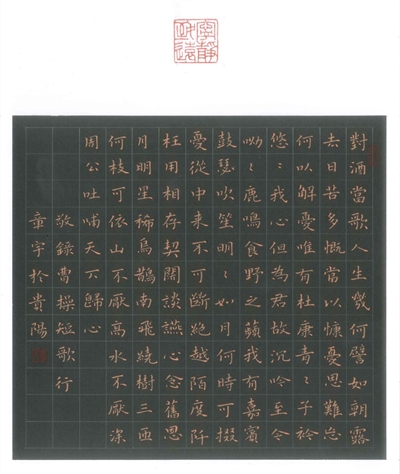 寧靜
致遠
對酒當歌人生幾何譬如朝露
去日苦多慨當以慷憂思難忘
何以解憂唯有杜康青〻子衿
悠〻我心但為君故沉吟至今
呦〻鹿鳴食野之蘋我有嘉賓
鼓瑟吹笙明〻如月何時可掇
憂從中来不可斷絕越陌度阡
枉用相存契闊談讌心念舊恩
月明星稀烏鵲南飛繞樹三匝
何枝可依山不厭高水不厭深
周公吐哺天下歸心
敬錄曹操短歌行
童宇於貴陽